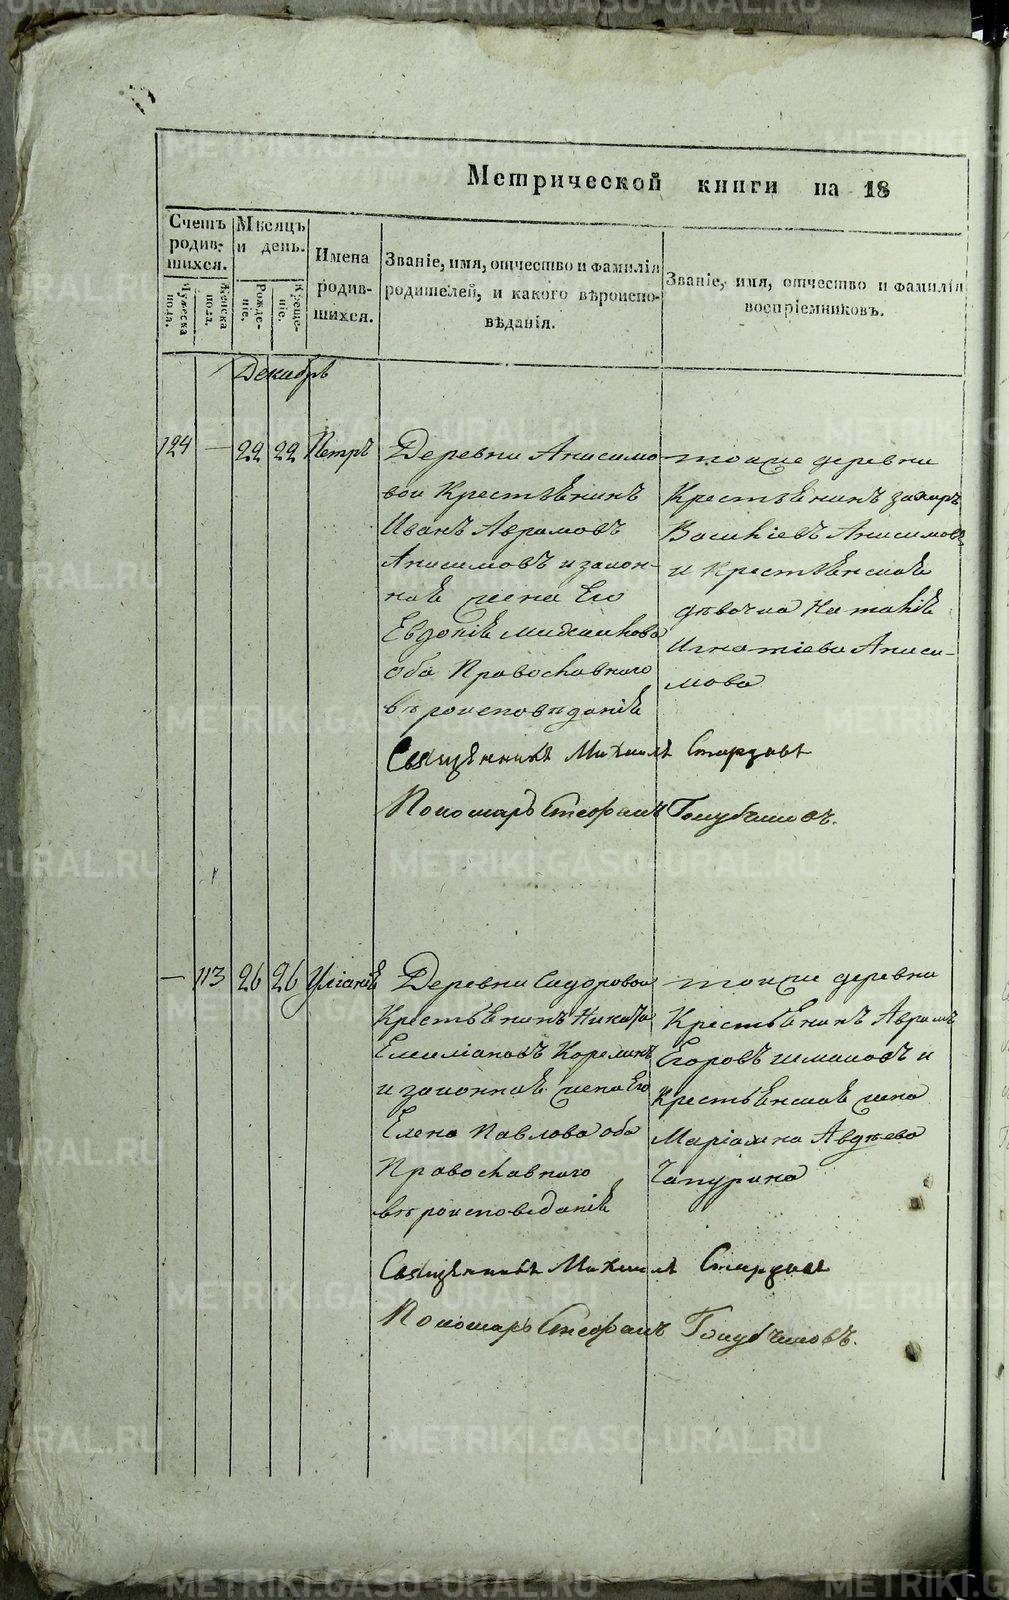 Метрической книги на 18
Счетъ родив-шихся.
Мужеска пола.
Женска пола.
Мѣсяцъ и день.
Рожде-ніе.
Креще-ніе.
Имена родив-шихся.
Званіе, имя, отчество и фамилія
родителей, и какого вѣроиспо-
вѣданія.
Званіе, имя, отчество и фамилія
воспріемниковъ.
Декабрь
124 — 22 22 Петръ
Деревни Анисимо
вой Крестьянинъ
Иванъ Аврамовъ
Анисимовъ и закон-
ная жена Его
Евдокія Михайлова
оба Православнаго
вѣроисповѣданія
тойже деревни
Крестьянинъ захаръ
Васильевъ Анисимовъ
и крестьянская
дѣвочка Наталія
Игнатіева Аниси-
мова
Священникъ Михаилъ Старцевъ
Пономарь Стефанъ Голубчиковъ.
— 113 26 26 Уліанія
Деревни Сидоровой
Крестьянинъ Никита
Емиліановъ Корелинъ
и законная жена Его
Елена Павлова оба
Православнаго
вѣроисповеданія
тойже деревни
Крестьянинъ Аврамъ
Егоровъ и
Крестьянская жена
Маріамна Авдѣева
Чапурина
Священникъ Михаилъ Старцевъ
Пономарь Стефанъ Голубчиковъ.
METRIKI.GASO-URAL.RU